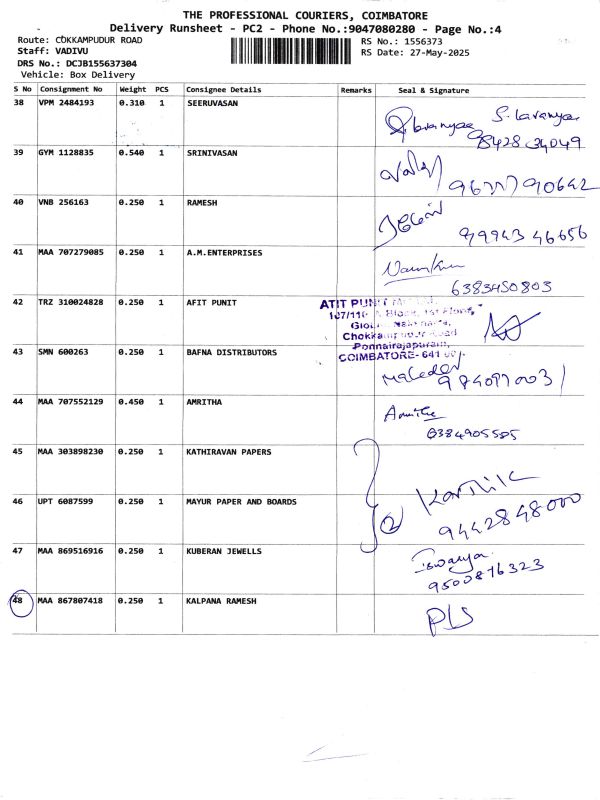 THE PROFESSIONAL COURIERS, COIMBATORE
Delivery Runsheet - PC2 - Phone No.:9047080280 - Page No.:4
Route: COKKAMPUDUR ROAD RS No.: 1556373
Staff: VADIVU RS Date: 27-May-2025
DRS No.: DCJB155637304
Vehicle: Box Delivery
S No Consignment No Weight PCS Consignee Details Remarks Seal & Signature
38 VPM 2484193 0.310 1 SEERUVASAN
S. Lavanya
98428 34049
39 GYM 1128835 0.540 1 SRINIVASAN
40 VNB 256163 0.250 1 RAMESH
99943 46656
41 MAA 707279085 0.250 1 A.M.ENTERPRISES
6383450803
42 TRZ 310024828 0.250 1 AFIT PUNIT
ATIT PUNIT
COIMBATORE- 641
43 SMN 600263 0.250 1 BAFNA DISTRIBUTORS
44 MAA 707552129 0.450 1 AMRITHA
Amritha
45 MAA 303898230 0.250 1 KATHIRAVAN PAPERS
46 UPT 6087599 0.250 1 MAYUR PAPER AND BOARDS
2 Karthik
9442848000
47 MAA 869516916 0.250 1 KUBERAN JEWELLS
Iswarya
9500876323
48 MAA 867807418 0.250 1 KALPANA RAMESH